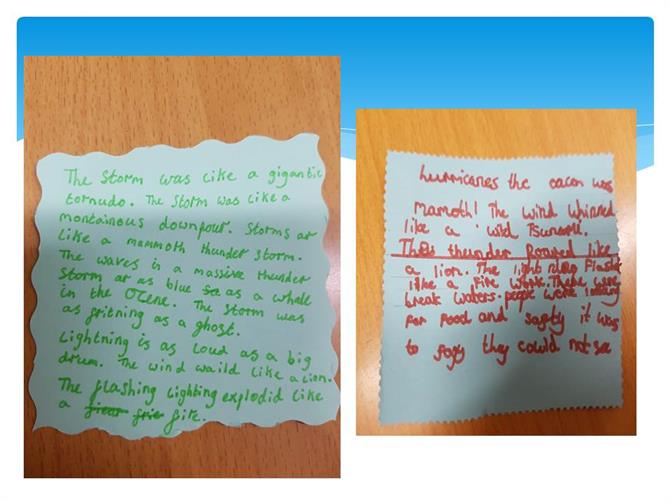 The Storm was like a gigantic
tornudo. The Storm was Like a
montainous downpour. Storms ar
like a mammoth thunder storm.
The waves is a massive thunder
Storm ar as blue as a whale
in the Ocene. The Storm was
as fritning as a ghost.
Lightning is as Loud as a big
drum. The wind waild like a Lion.
The flashing Lighting explodid like
a fire.
hurricanes the was
Mamoth! The wind whirred
like a wild Tsunami.
The thunder Roared like
a lion. The flash
like a fire work. There were
break waters. were
For Food and Safty it was
to fogy they could not see